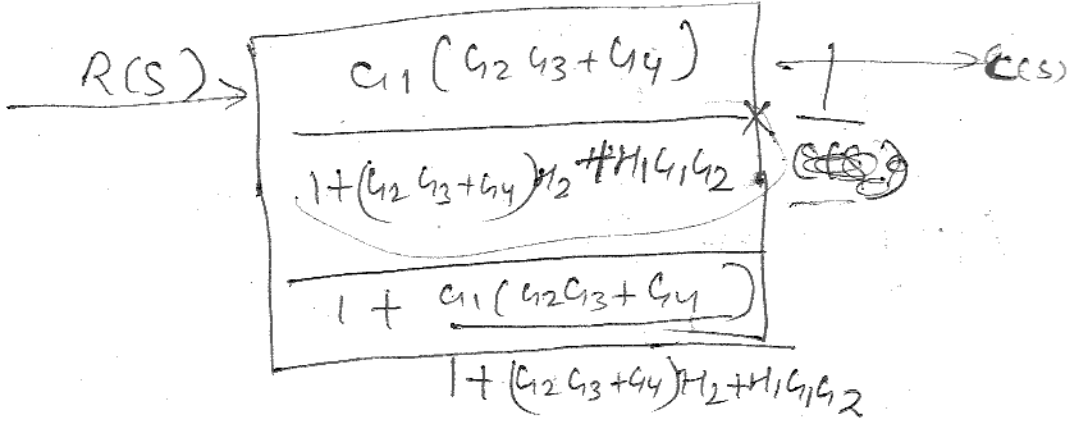 R(S) G1(G2G3+G4) 1 C(S)
1+(G2G3+G4)H2+H1G1G2
1+ G1(G2G3+G4)
1+(G2G3+G4)H2+H1G1G2